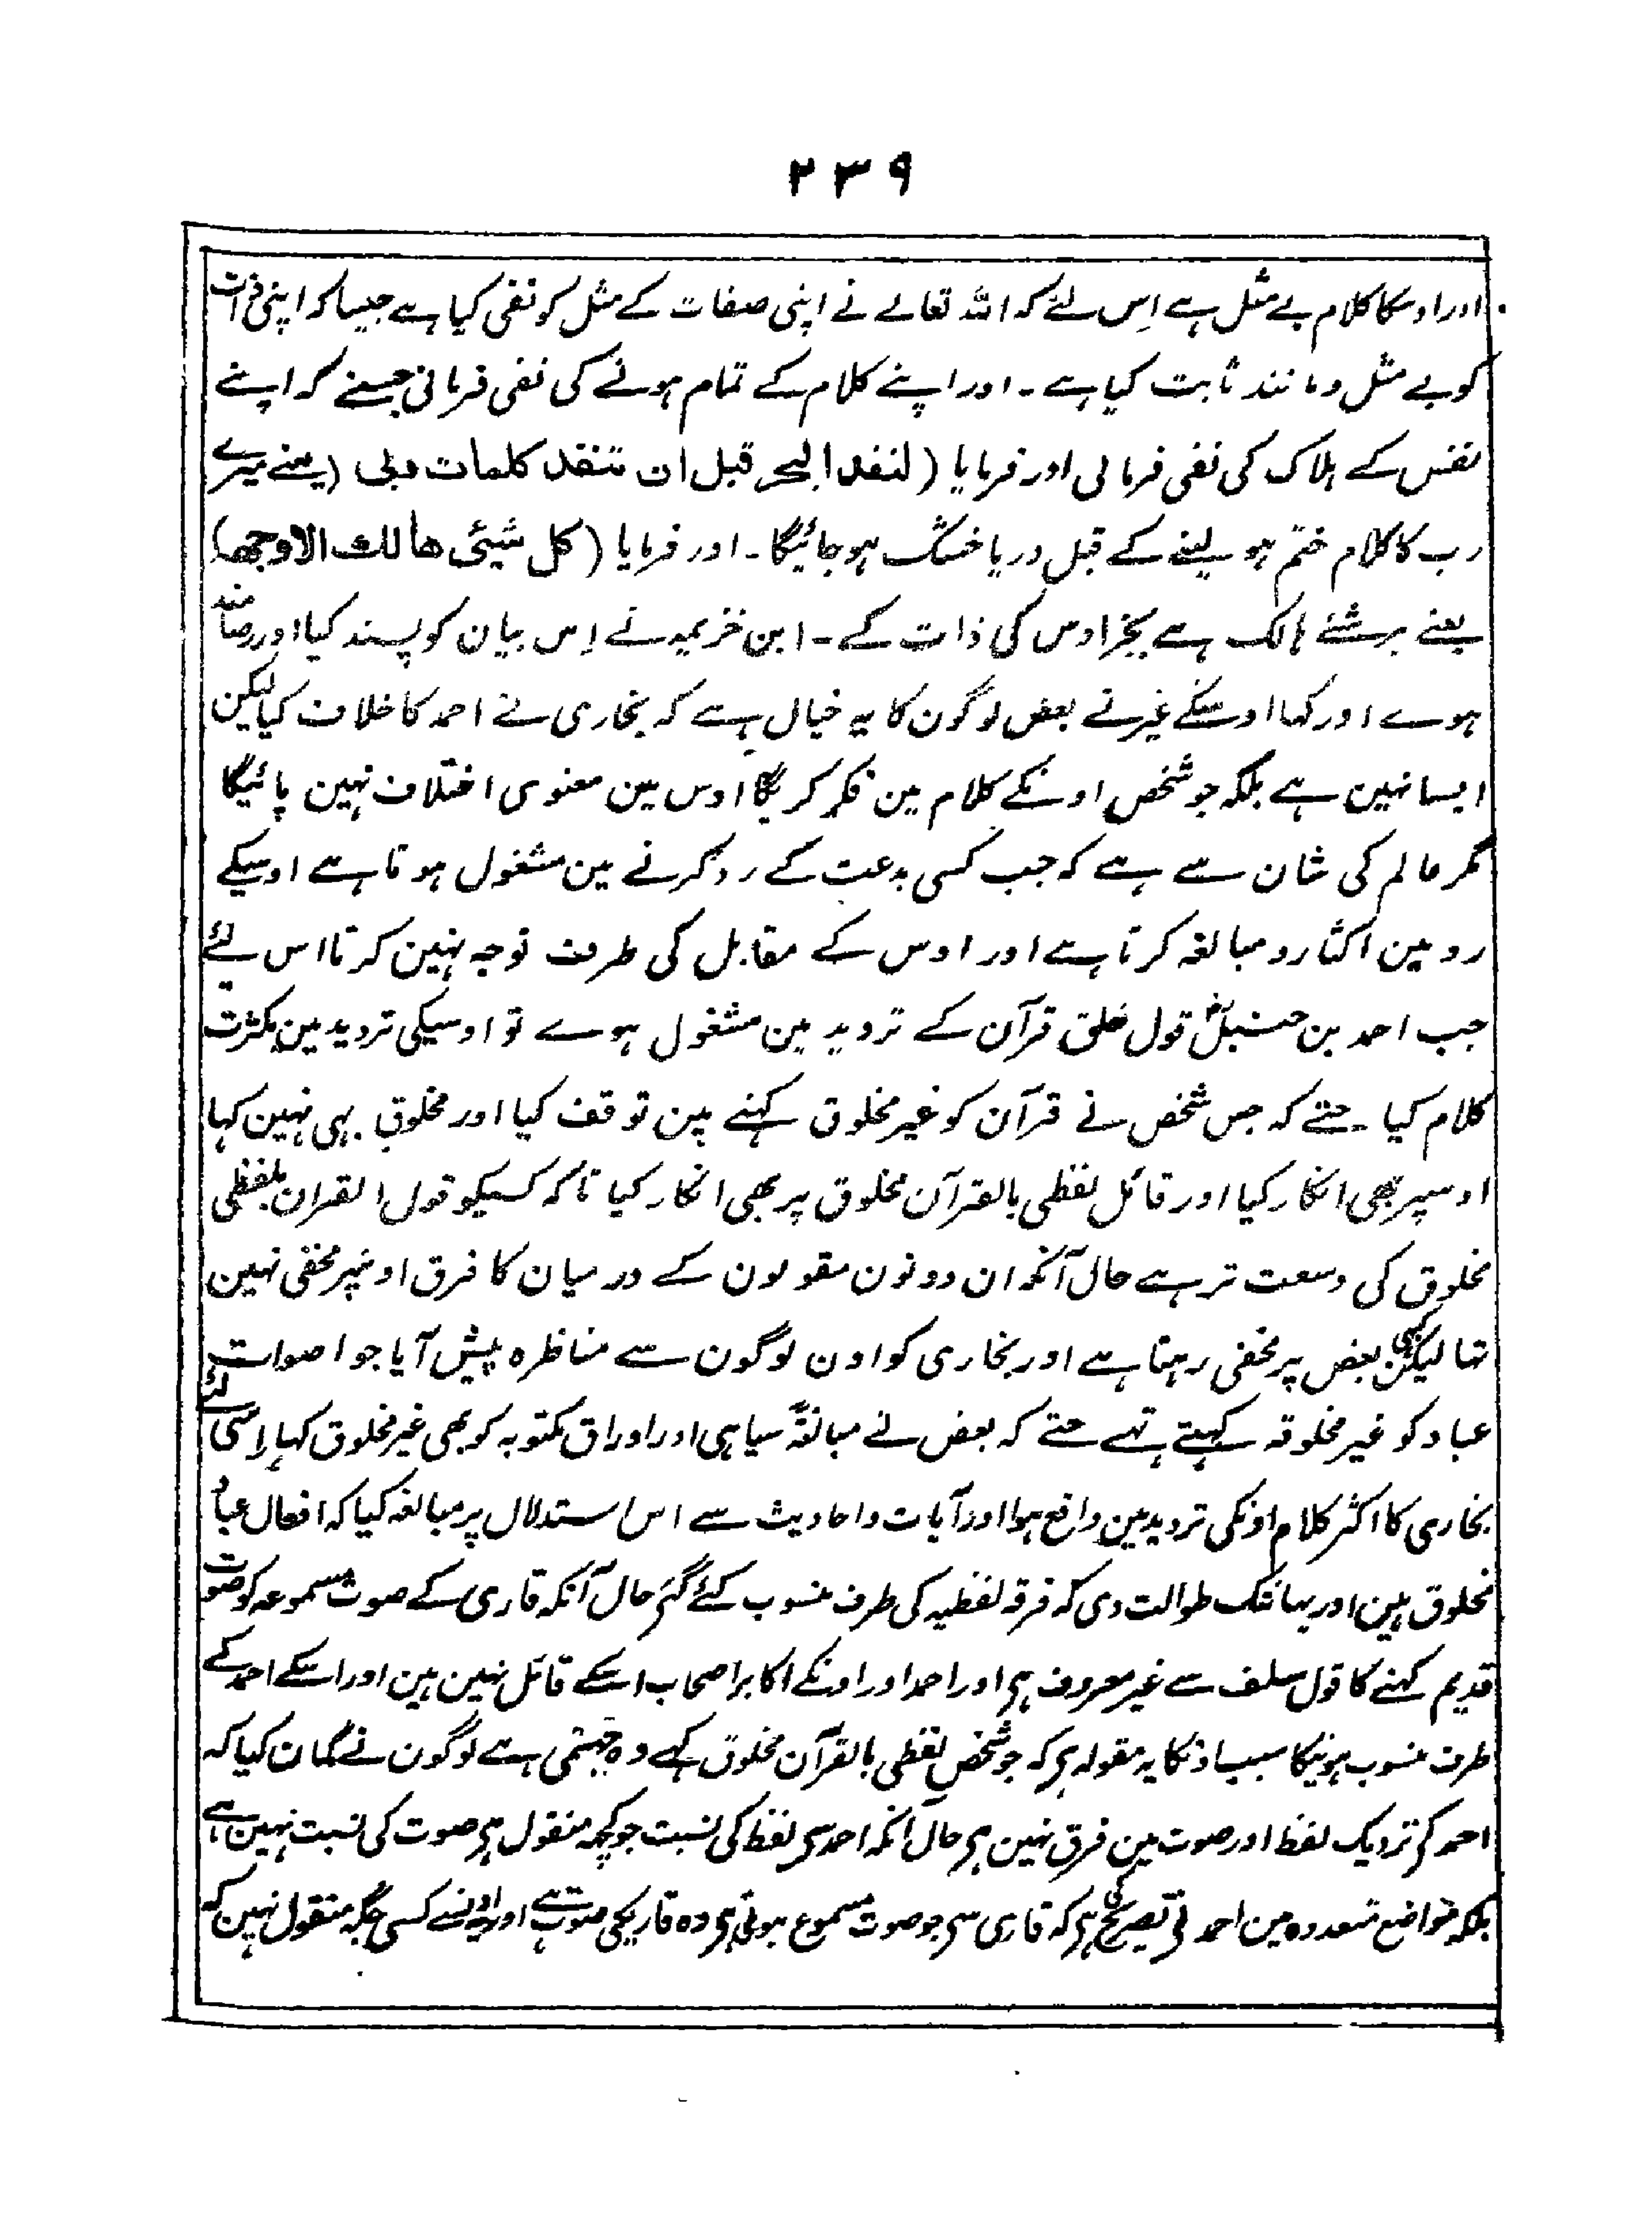 ۲۳۹
اور اوسکا کلام بے مثل ہے اِس لئے کہ اللہ تعالے نے اپنی صفات کے مثل کو نفی کیا ہے جیسا کہ اپنی ذات
کو بے مثل و مانند ثابت کیا ہے ۔ اور اپنے کلام کے تمام ہونے کی نفی فرمائی جیسے کہ اپنے
نفس کے ہلاک کی نفی فرمائی اور فرمایا (لنفد البحر قبل ان تنفد کلمات ربی (یعنے میرے
رب کا کلام ختم ہو لینے کے قبل دریا خشک ہو جائیگا ۔ اور فرمایا (کل شیئی ھالك الا وجھہ)
یعنے ہر شئے ہالک ہے بجز اوس کی ذات کے ۔ ابن خزیمہ نے اِس بیان کو پسند کیا اور رضامند
ہوے اور کہا اوسکے غیر نے بعض لوگون کا یہ خیال ہے کہ بخاری نے احمد کا خلاف کیا لیکن
ایسا نہین ہے بلکہ جو شخص اونکے کلام مین فکر کریگا اوس مین معنوی اختلاف نہین پائیگا
مگر عالم کی شان سے ہے کہ جب کسی بدعت کے رد کرنے مین مشغول ہوتا ہے اوسیکے
رد مین اکثار و مبالغہ کرتا ہے اور اوس کے مقابل کی طرف توجہ نہین کرتا اس لئے
جب احمد بن حنبلؓ قول خلق قرآن کے تردید مین مشغول ہوے تو اوسیکی تردید مین بکثرت
کلام کیا ۔ حتے کہ جس شخص نے قرآن کو غیر مخلوق کہنے مین توقف کیا اور مخلوق بہی نہین کہا
اوسپر بھی انکار کیا اور قائل لفظی بالقرآن مخلوق پر بھی انکار کیا تاکہ کسیکو قول القران بلفظی
مخلوق کی وسعت نر ہے حال آنکہ ان دونون مقولون کے درمیان کا فرق اونپر مخفی نہین
تہا لیکن کبھی بعض پر مخفی رہتا ہے اور بخاری کو اون لوگون سے مناظرہ پیش آیا جو اصوات
عباد کو غیر مخلوقہ کہتے تہے حتے کہ بعض نے مبالغۃً سیاہی اور اوراق مکتوبہ کو بھی غیر مخلوق کہا اِسی لئے
بخاری کا اکثر کلام اونکی تردید مین واقع ہوا اور آیات و احادیث سے اس استدلال پر مبالغہ کیا کہ افعال عباد
مخلوق ہین اور یہانتک طوالت دی کہ فرقہ لفظیہ کی طرف منسوب کئے گئے حال آنکہ قاری کے صوت مسموعہ کو صوت
قدیم کہنے کا قول سلف سے غیر معروف ہے اور احمد اور اونکے اکابر اصحاب اسکے قائل نہین ہین اور اسکے احمد کے
طرف منسوب ہونیکا سبب اونکا یہ مقولہ ہے کہ جو شخص لفظی بالقرآن مخلوق کہے وہ جہمی ہے لوگون نے گمان کیا کہ
احمد کے نزدیک لفظ اور صوت مین فرق نہین ہے حال آنکہ احمد سے لفظ کی نسبت جو کچہ منقول ہے صوت کی نسبت نہین ہے
بلکہ مواضع متعددہ مین احمد نے تصریح کی ہے کہ قاری سے جو صوت مسموع ہوتی ہے وہ قاریکی صوت ہے اور اونسے کسی جگہ منقول نہین کہ